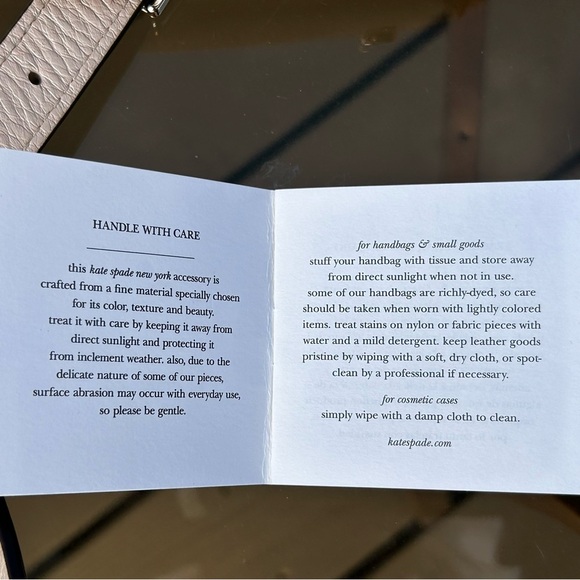 HANDLE WITH CARE
this kate spade new york accessory is
crafted from a fine material specially chosen
for its color, texture and beauty.
treat it with care by keeping it away from
direct sunlight and protecting it
from inclement weather. also, due to the
delicate nature of some of our pieces,
surface abrasion may occur with everyday use,
so please be gentle.
for handbags & small goods
stuff your handbag with tissue and store away
from direct sunlight when not in use.
some of our handbags are richly-dyed, so care
should be taken when worn with lightly colored
items. treat stains on nylon or fabric pieces with
water and a mild detergent. keep leather goods
pristine by wiping with a soft, dry cloth, or spot-
clean by a professional if necessary.
for cosmetic cases
simply wipe with a damp cloth to clean.
katespade.com